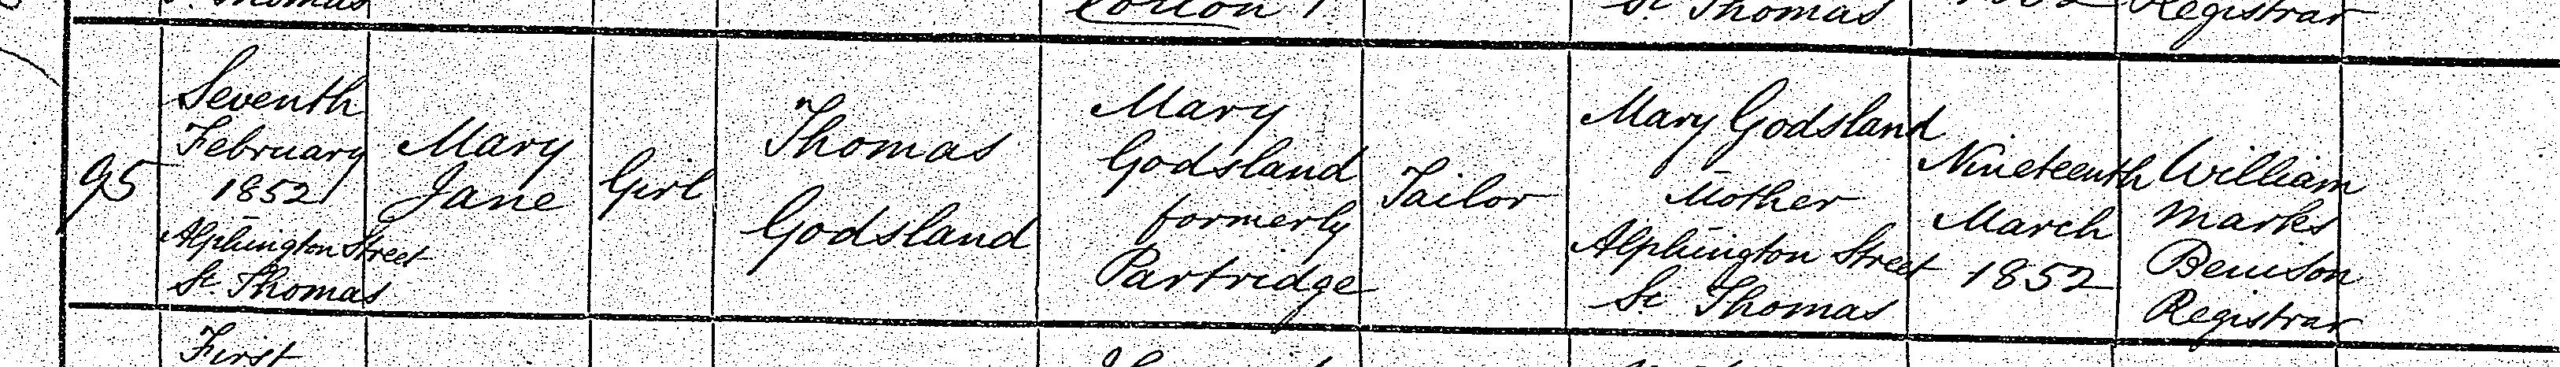 St. Thomas
Corton
St. Thomas
Registrar
95
Seventh
February
1852
Alphington Street
St. Thomas
Mary
Jane
Girl
Thomas
Godsland
Mary
Godsland
formerly
Partridge
Tailor
Mary Godsland
Mother
Alphington Street
St. Thomas
Nineteenth
March
1852
William
Marks
Denison
Registrar
First